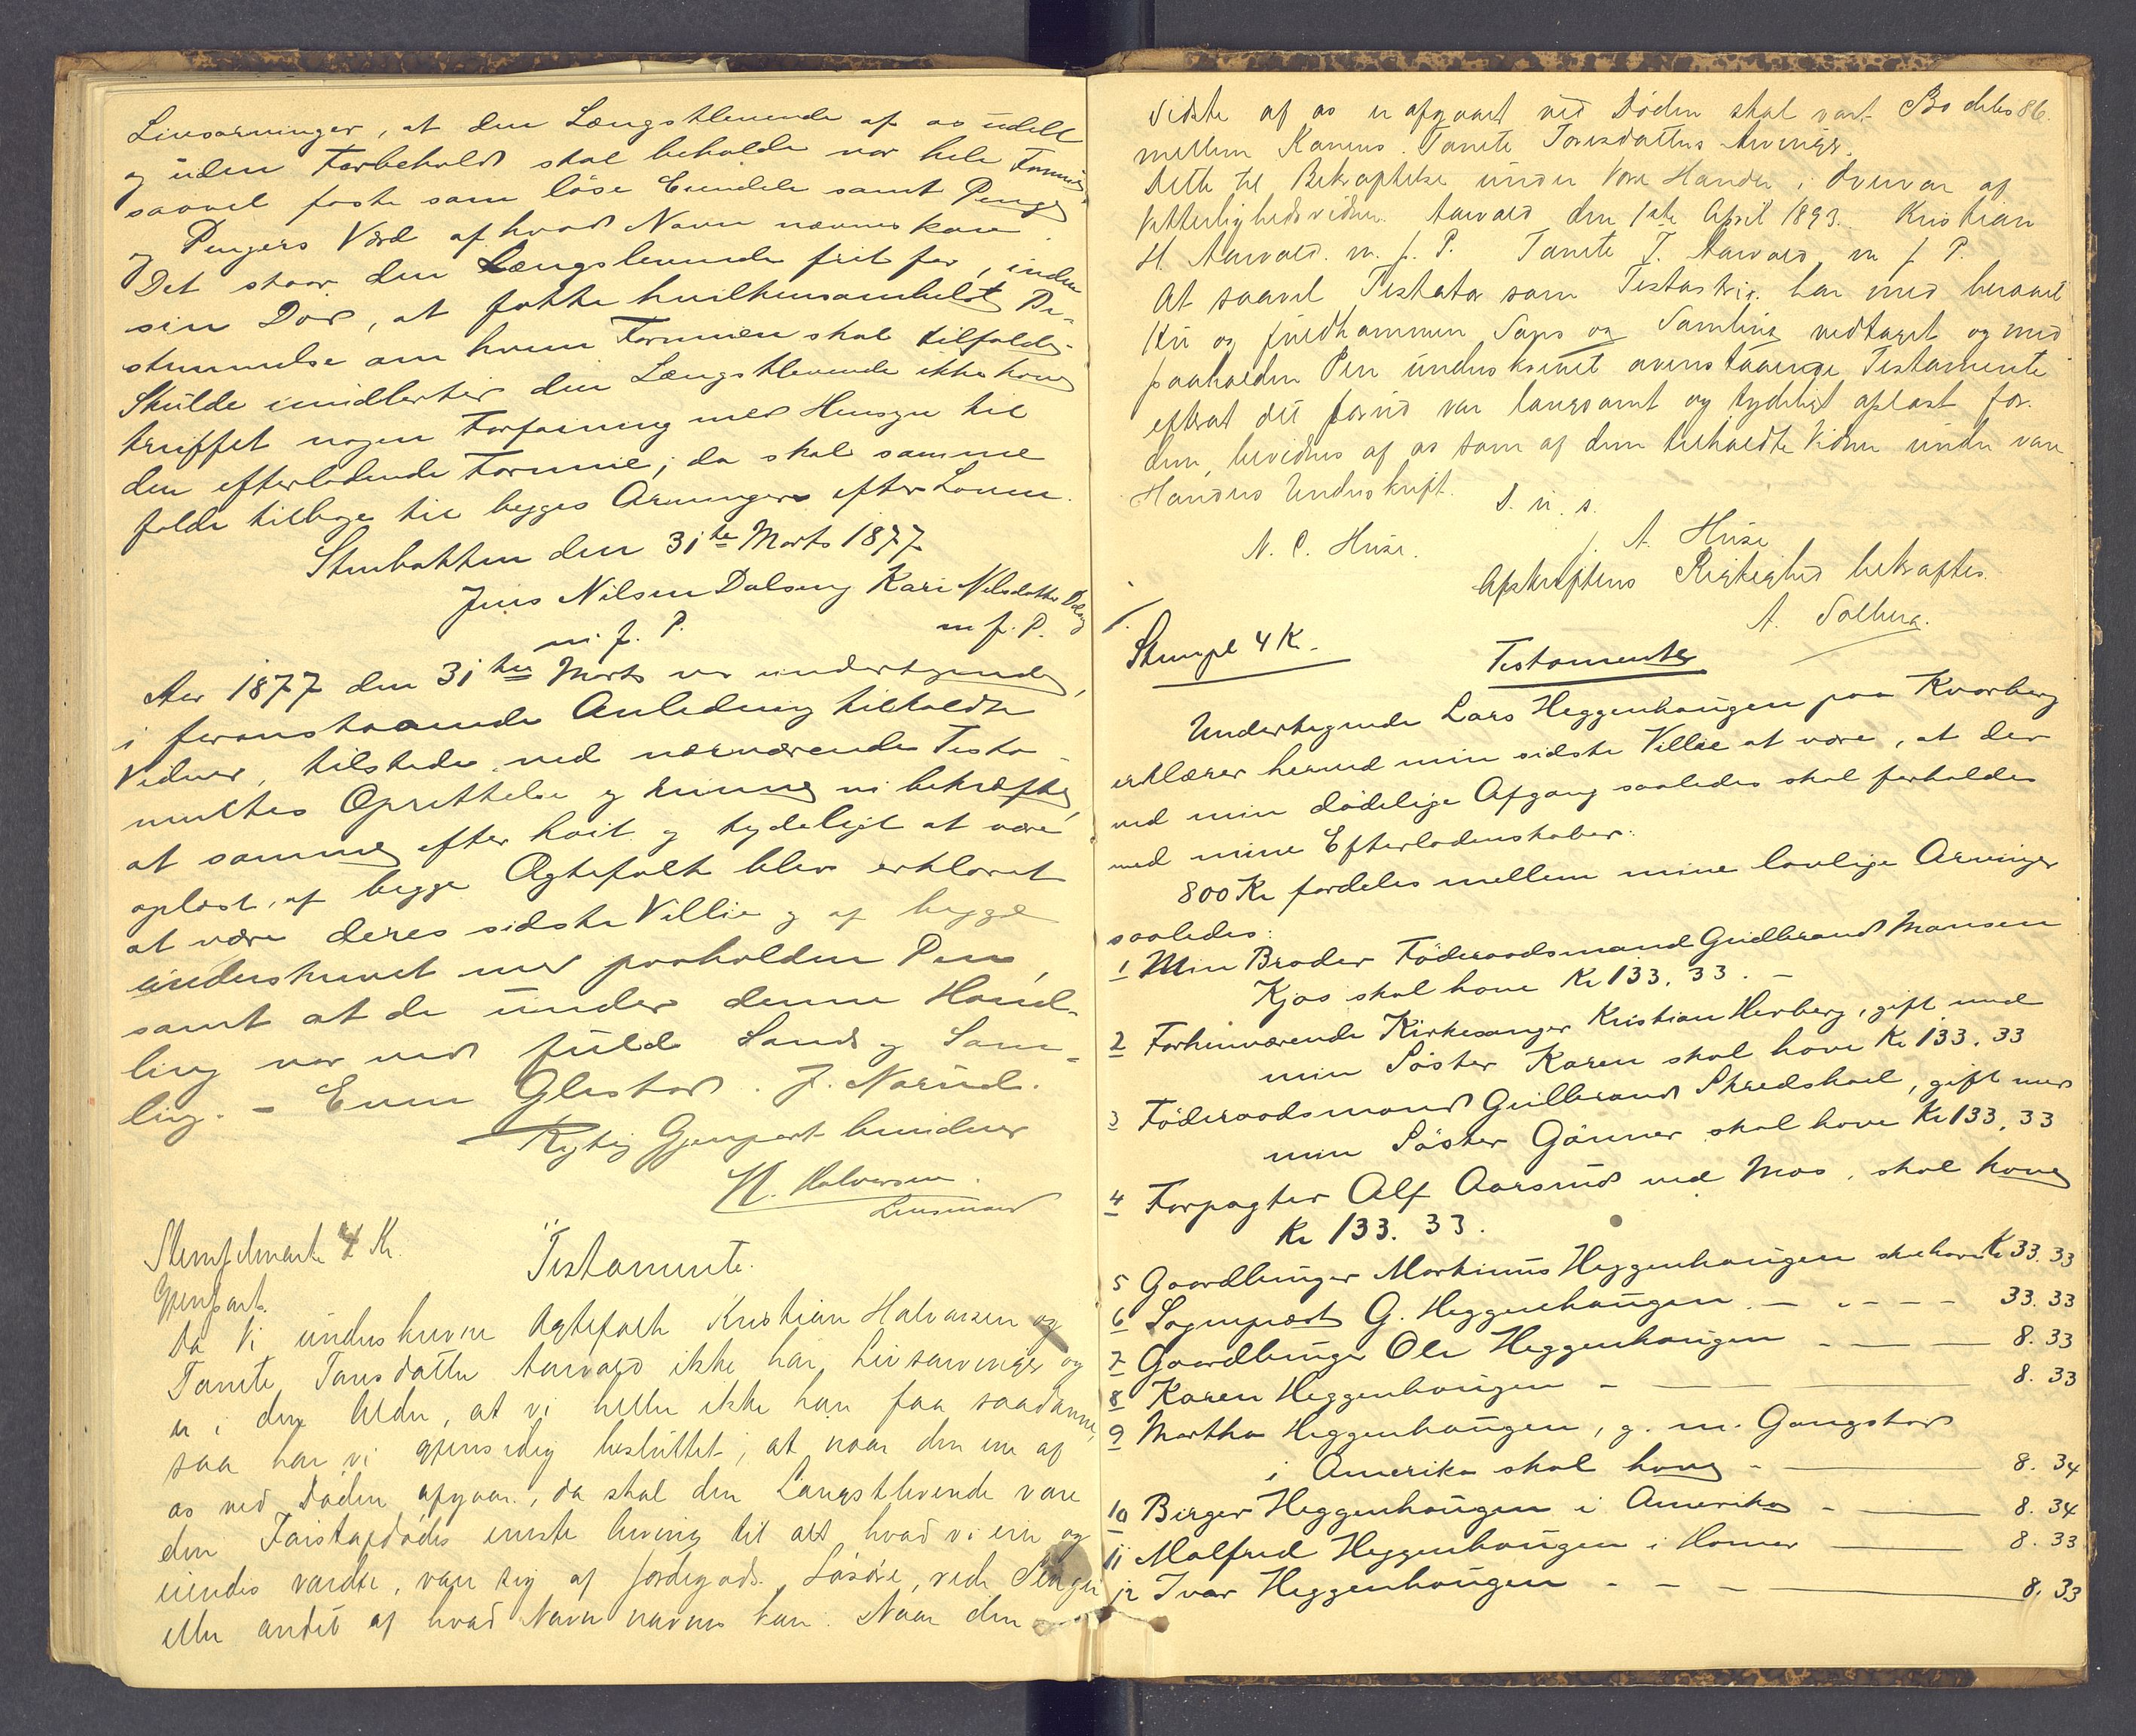 Livsarvinger, at den Længstlevende af os udelt
og uden Forbehold skal beholde vor hele Formue
saavel faste som löse Eiendele samt Penge
og Pengers Værd af hvad Navn nævnes kan.
Det staar den Længslevende frit for, inden
sin Död, at fatte hvilkensomhelst Be-
stemmelse om hvem Formuen skal tilfalde.
Skulde imidlertid den Længstlevende ikke have
truffet nogen Forføining med Hensyn til
den efterladende Formue, da skal samme
falde tilbage til begges Arvinger efter Loven.
Stenbakken den 31te Marts 1877
Jens Nilsen Dalseng Kari Nilsdatter Dalseng
m. f. P. m f. P.
Aar 1877 den 31te Marts var undertegnede,
i foranstaaende Anledning tilkaldte
Vidner, tilstede ved nærværende Testa
mentes Oprettelse og kunne vi bekræfte,
at samme efter höit og tydeligt at være
oplæst, af begge Ægtefolk blev erklæret
at være deres sidste Villie og af begge
underskrevet med paaholden Pen,
samt at de under denne Hand-
ling var ved fuld Sands og Sam-
ling. - Even Glestad. J. Norud.
Rigtig Gjenpart bevidner
H. Halvorsen.
Lensmand
Stempelmærke 4 Kr. Testamente.
Gjenpart.
Da Vi underskrevne Ægtefolk Kristian Halvorsen og
Tarute Toresdatter Aarvold ikke har Livsarvinger og
er i den Alder, at vi heller ikke kan faa saadanne,
saa har vi gjensidig besluttet, at naar den ene af
os ved Döden afgaar, da skal den Længstlevende være
den Förstafdödes eneste Arving til alt hvad vi eie og
eiendes vorder, være sig af Jordegods, Lösöre, rede Penge
eller andet af hvad Navn nævnes kan. Naar den
Sidste af os er afgaaet ved Döden skal vort Bo deles 86.
mellem Konens Tarute Toresdatters Arvinger.
Dette til Bekræftelse under vore Hænder i Overvær af
Vitterlighedsvidner. Aarvold den 1ste April 1893. Kristian
H. Aarvold. m. f. P. Tarute T. Aarvold m f P.
At saavel Testator som Testatrix har med beraad
Hu og fuldkommen Sans og Samling vedtaget og med
paaholden Pen underskrevet ovenstaaende Testamente
efterat det forud var langsomt og tydeligt oplæst for
dem, bevidnes af os som af dem tilkaldte Vidner under vore
Hænders Underskrift.
D. u. s.
N. C. Huse. J. A. Huse
Afskriftens Rigtighed bekræftes.
A. Solberg.
Stempl 4 K. Testamente
Undertegnede Lars Heggenhaugen paa Kvarberg
erklærer herved min sidste Villie at være, at der
ved min dödelige Afgang saaledes skal forholdes
med mine Efterladenskaber:
800 Kr fordeles mellem mine lovlige Arvinger
saaledes:
1 Min Broder Föderaadsmand Gudbrand Mansen
Kjos skal have Kr 133. 33. -
2 Forhenværende Kirkesanger Kristian Herberg, gift med
min Söster Karen skal have Kr 133. 33
3 Föderaadsmand Gulbrand Skredshoel, gift med
min Söster Gönner skal have Kr 133. 33
4 Forpagter Alf Aarsrud ved Mos, skal have
Kr 133. 33.
5 Gaardbruger Martinus Heggenhaugen skal have Kr 33. 33
6 Sogneprest G. Heggenhaugen - - - - 33. 33
7 Gaardbruger Ole Heggenhaugen - - - 8. 33
8 Karen Heggenhaugen - - - 8. 33
9 Martha Heggenhaugen, g. m. Gangstad
i Amerika skal have - - 8. 34
10 Birger Heggenhaugen i Amerika - - 8. 34
11 Malfred Heggenhaugen i Hamar - 8. 33
12 Ivar Heggenhaugen - - - 8. 33